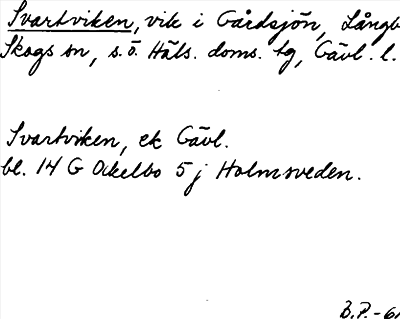 Svartviken, vik i Gårdsjön, Långb
Skogs sn, s.ö. Häls. doms. tg, Gävl. l.
Svartviken, ek Gävl.
bl. 14 G Ockelbo 5 j Holmsveden.
B.P.-61